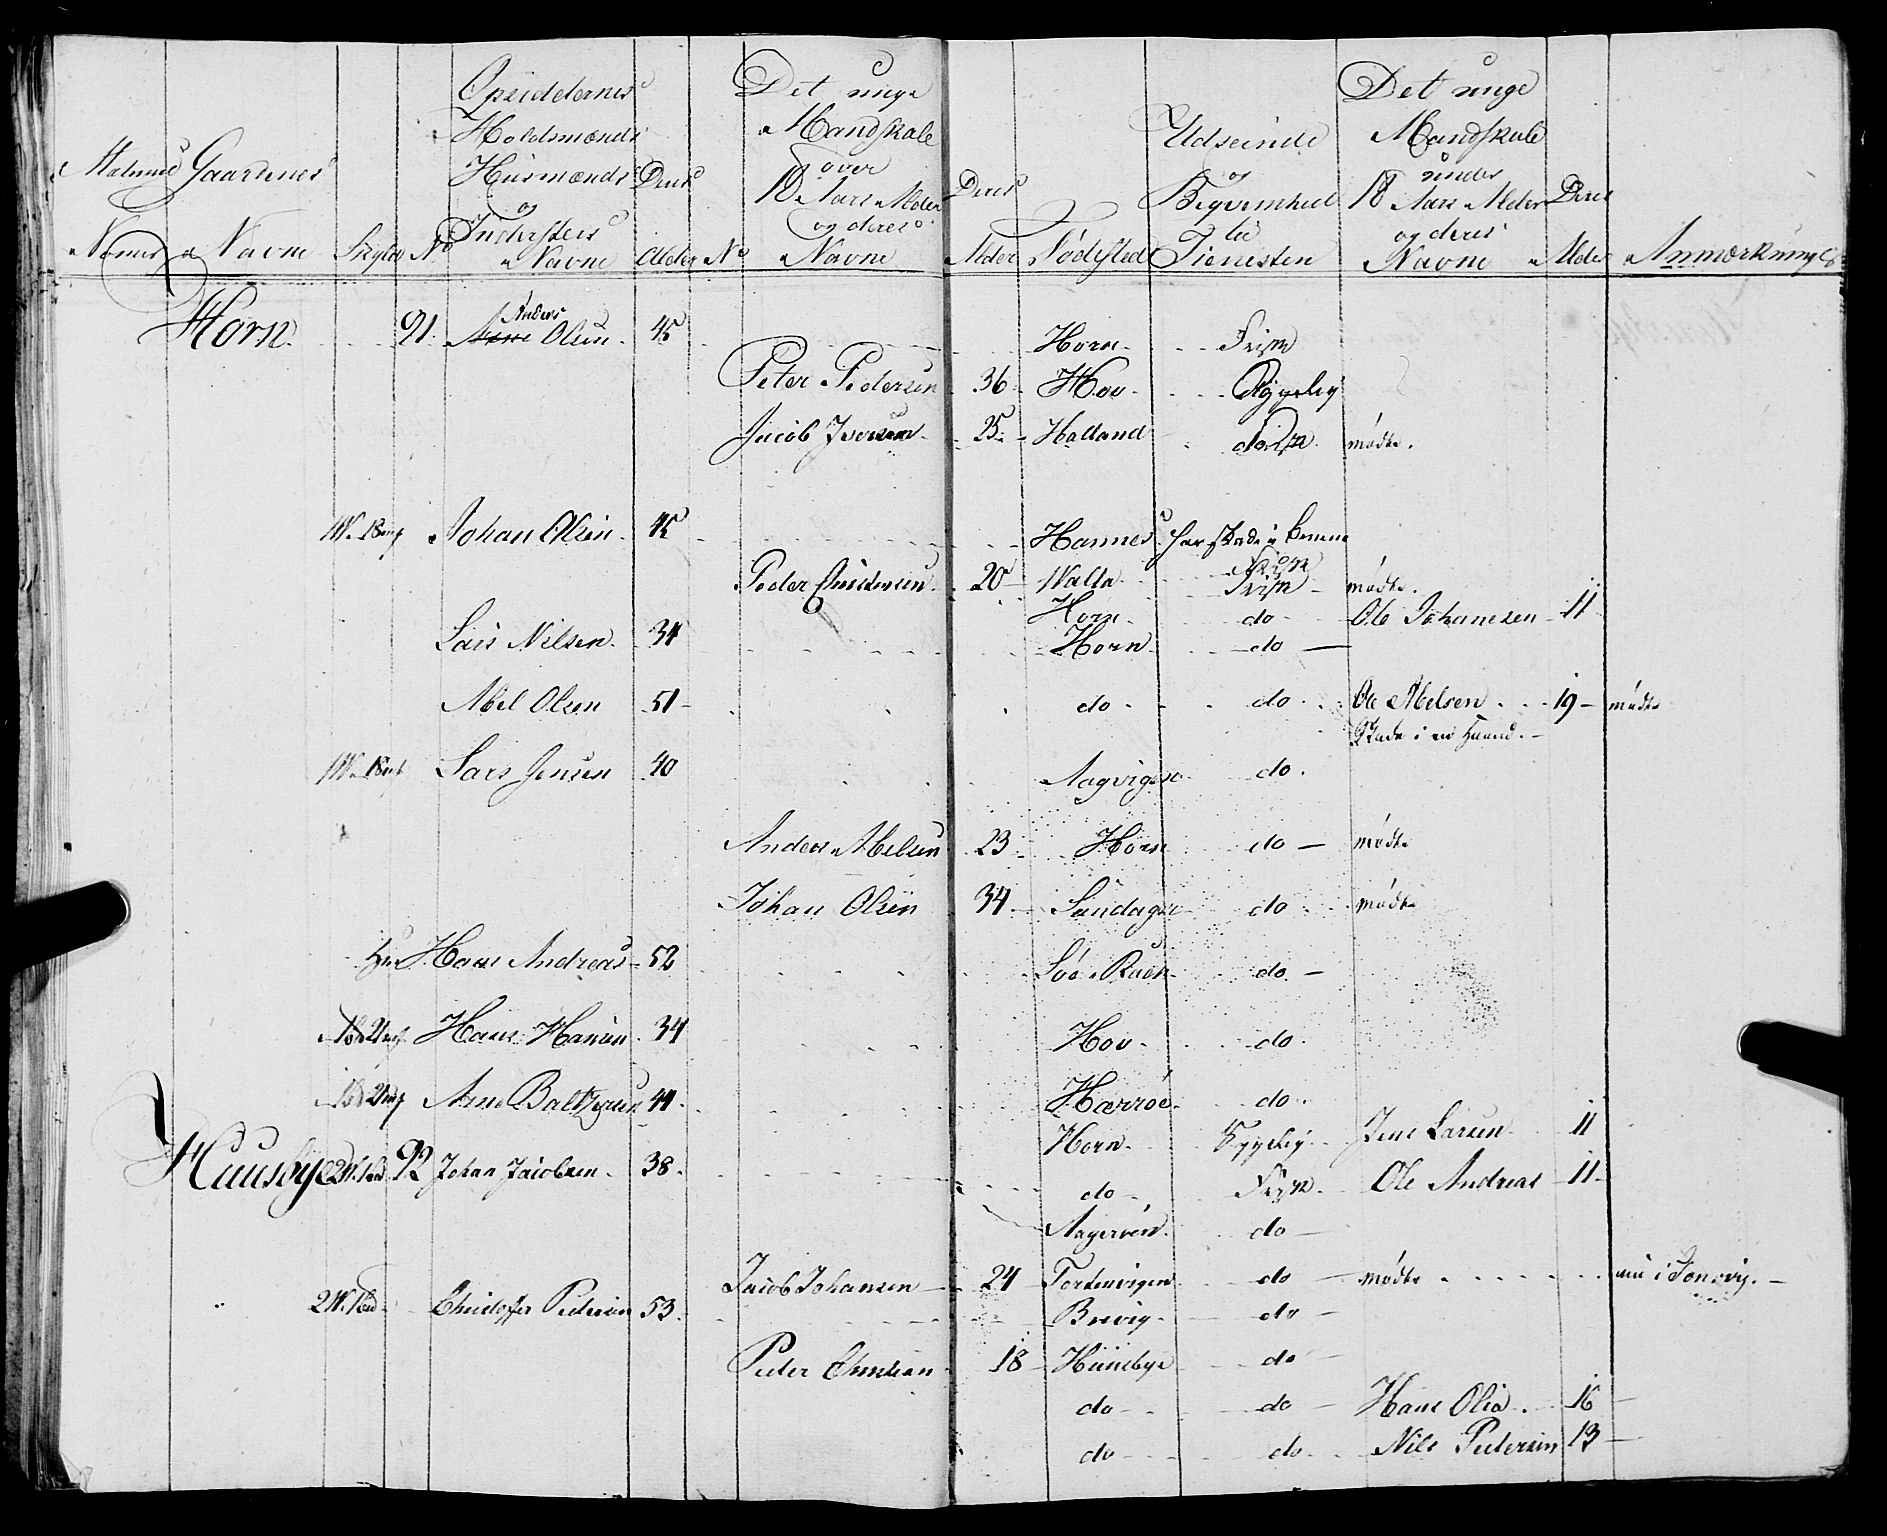 Matrul Numer
Gaardenes Navne
Skylds
No
Opsiddernes Holdsmænds Husmænds og Inderstes Navne
Deres Alder
No
Det unge Mandskab over 18 Aars Alder og deres Navne
Deres Alder
Fødested
Udseende og Beqvemhed til Tienesten
Det unge Mandskab under 18 Aars Alder og deres Navne
Deres Alder
Anmærkninger
Horn 91 Anders Olsen 45 Horn Frisk
Peter Pedersen 36 Hov
Jacob Iversen 25 Halland do mødte.
Johan Olsen 45 Hannes har skade i benene
Frisk
Peder Christensen 20 Walla Frisk mødte.
Horn do Ole Johanesen 11
Lars Nilsen 34 Horn do
Abel Olsen 51 do do Ole Abelsen 19 mødte
Skade i en Haand.
Lars Jensen 40 Aagvigen do
Anders Abelsen 23 Horn do mødte
Johan Olsen 34 Sandager do mødte
Hans Andreas 52 do
Hans Hansen 34 Hov do
Arne Baltzersen 44 Harrøe do
Horn Sygelig Jens Larsen 11
Huusbye 92 Johan Jacobsen 38
do Frisk Ole Andreas 11
do
Jacob Johansen 24 Tortenvigen do mødte
Christoffer Pedersen 53 Brevig do
Peder Christian 18 Huusbye do
do do Hans Olia 16
do do Nils Pedersen 13